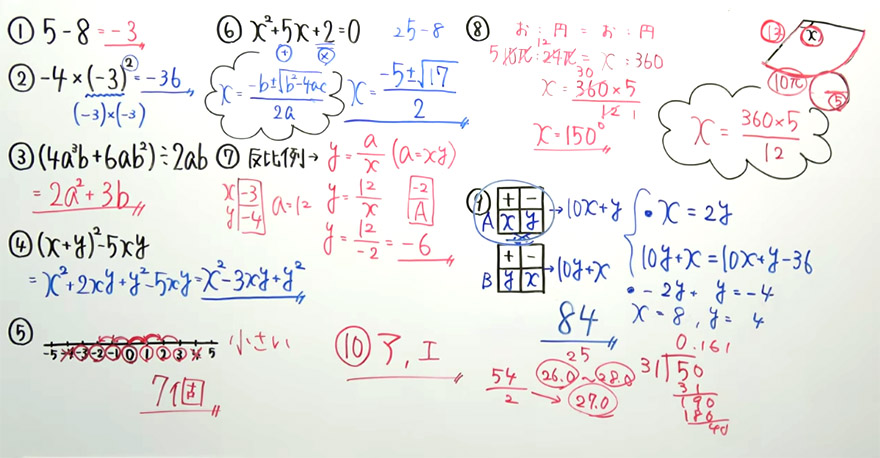 ① 5-8=-3
② -4×(-3)²=-36
(-3)×(-3)
③ (4a³b+6ab²)÷2ab
=2a²+3b
④ (x+y)²-5xy
=x²+2xy+y²-5xy=x²-3xy+y²
⑤
-5 -4 -3 -2 -1 0 1 2 3 4 5 小さい
7個
⑥ x²+5x+2=0 25-8
+ ×
x=(-b±√(b²-4ac))/2a x=(-5±√17)/2
⑦ 反比例→ y=a/x (a=xy)
x -3
y -4
a=12
y=12/x
-2
A
y=12/-2=-6
⑧ お:円=お:円
5 10π:24π=x:360
12
30
x=360×5/12 1
x=150°
12 x
10π
5
x=360×5/12
⑨
+ -
A x y →10x+y
+ -
B y x →10y+x
・x=2y
10y+x=10x+y-36
・-2y+ y=-4
x=8, y= 4
84
⑩ ア, エ
25
54/2 26.0~28.0
→ 27.0
0.161
31)50
31
190
186
40